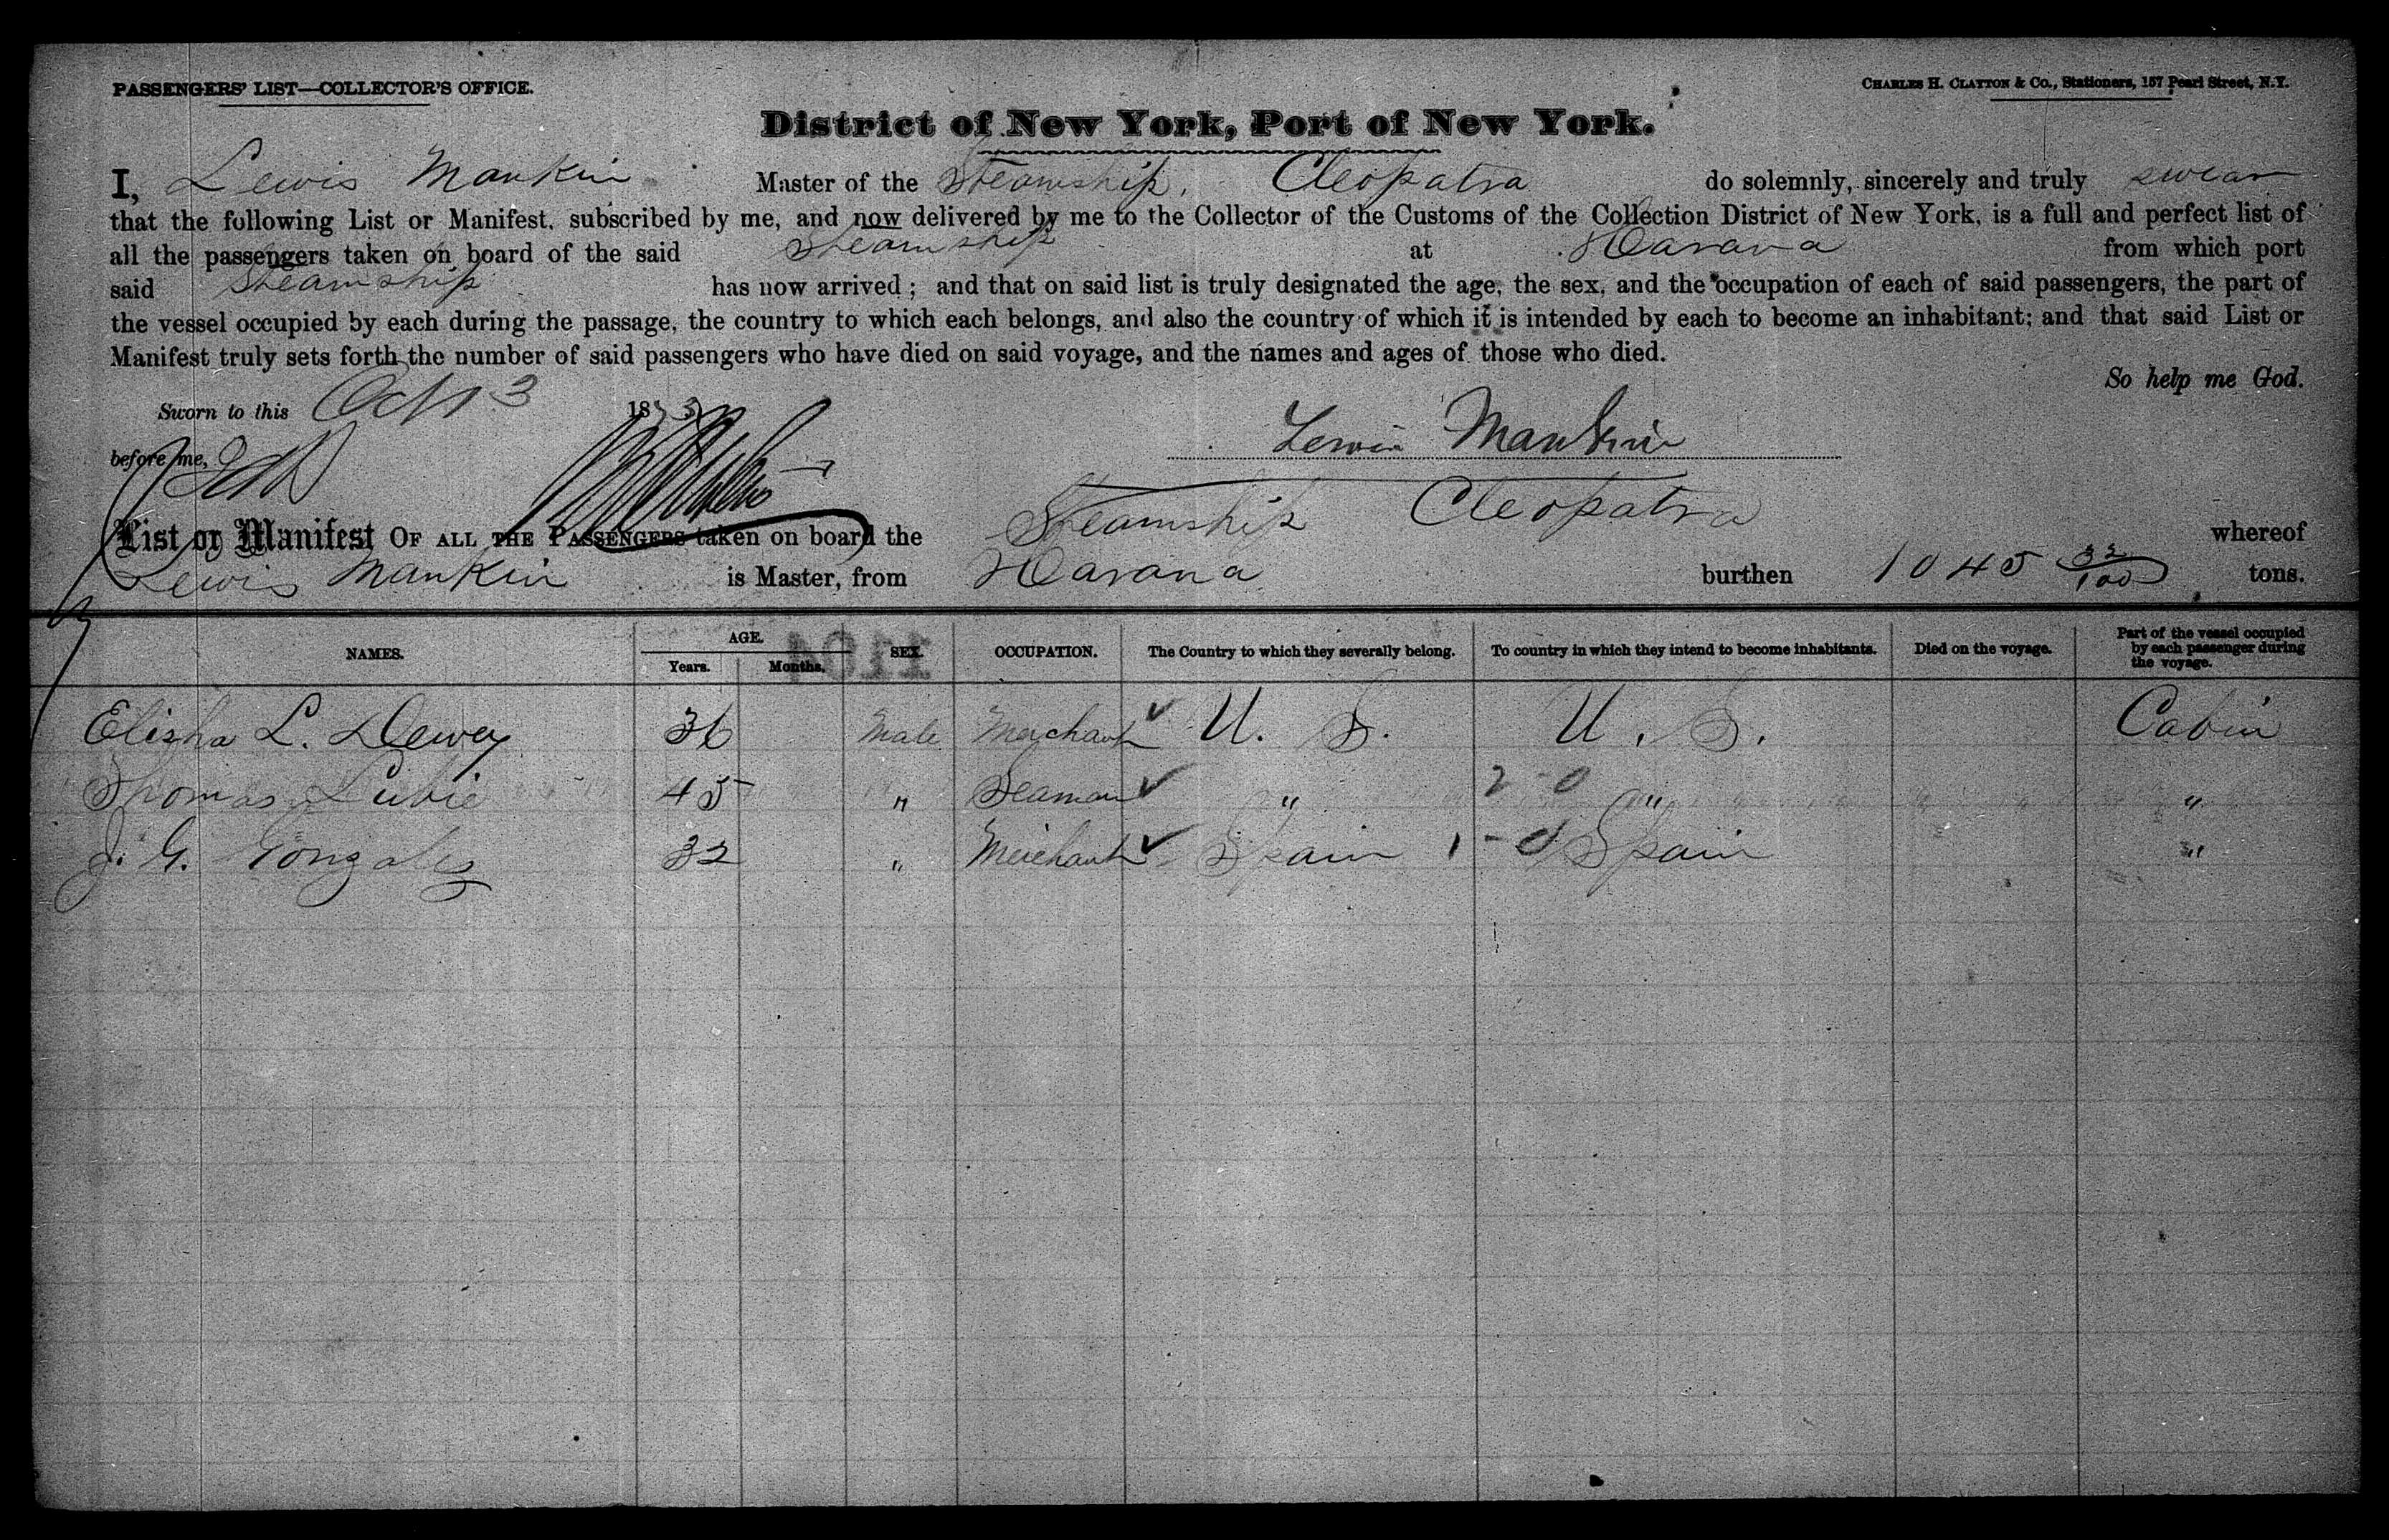 PASSENGERS' LIST—COLLECTOR'S OFFICE.
CHARLES H. CLAYTON & Co., Stationers, 157 Pearl Street, N.Y.
District of New York, Port of New York.
I, Lewis Mankin Master of the Steamship, Cleopatra do solemnly, sincerely and truly swear
that the following List or Manifest, subscribed by me, and now delivered by me to the Collector of the Customs of the Collection District of New York, is a full and perfect list of
all the passengers taken on board of the said Steamship at Havana from which port
said Steamship has now arrived; and that on said list is truly designated the age, the sex, and the occupation of each of said passengers, the part of
the vessel occupied by each during the passage, the country to which each belongs, and also the country of which it is intended by each to become an inhabitant; and that said List or
Manifest truly sets forth the number of said passengers who have died on said voyage, and the names and ages of those who died.
So help me God.
Sworn to this Oct 3 1873
before me,
Lewis Mankin
List or Manifest OF ALL THE PASSENGERS taken on board the Steamship Cleopatra whereof
Lewis Mankin is Master, from Havana burthen 1045 32/100 tons.
NAMES. AGE. Years. Months. SEX. OCCUPATION. The Country to which they severally belong. To country in which they intend to become inhabitants. Died on the voyage. Part of the vessel occupied by each passenger during the voyage.
Elisha L. Dewey 36 Male Merchant U. S. U. S. Cabin
Thomas Lubie 45 " Seaman " 2-0 " "
J. G. Gonzalez 32 " Merchant Spain 1-0 Spain "